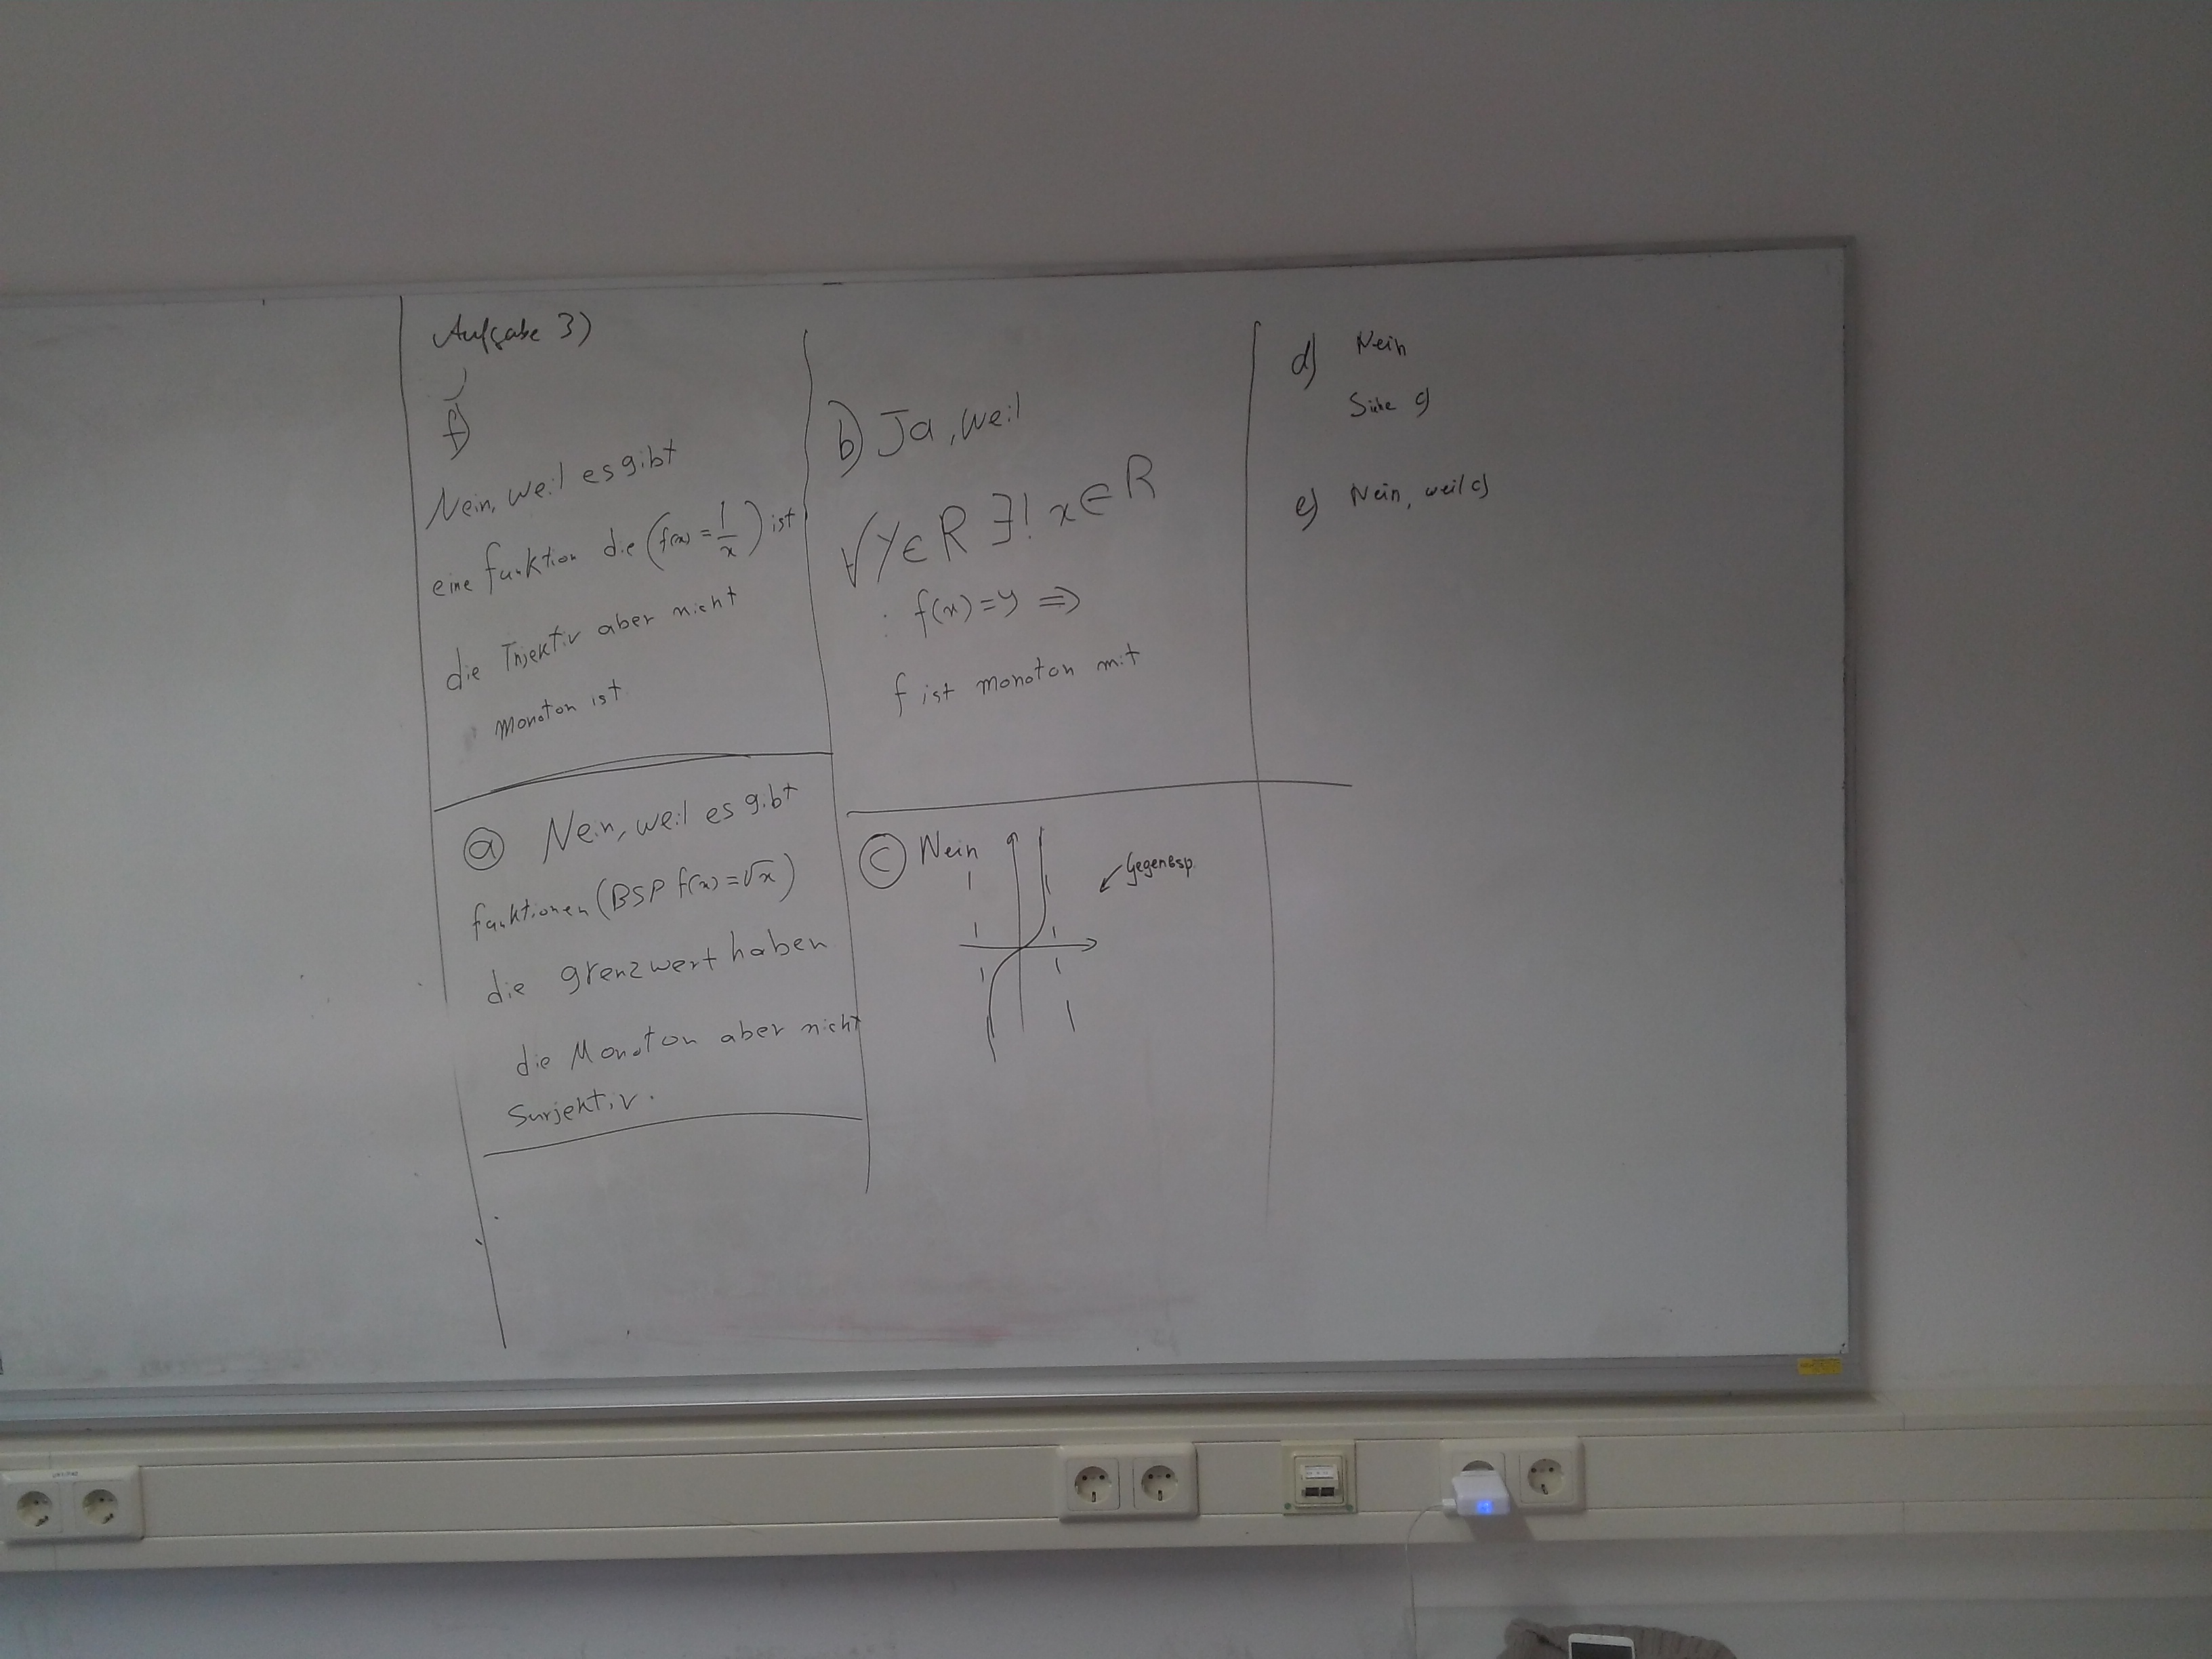 Aufgabe 3)
f)
Nein, weil es gibt
eine funktion die (f(x) = 1/x) ist
die Injektiv aber nicht
monoton ist
a) Nein, weil es gibt
funktionen (BSP f(x) = √x)
die grenzwert haben
die Monoton aber nicht
Surjektiv.
b) Ja, weil
∀ y ∈ R ∃! x ∈ R
: f(x) = y ⇒
f ist monoton mit
c) Nein
Gegenbsp.
d) Nein
Siehe c)
e) Nein, weil c)